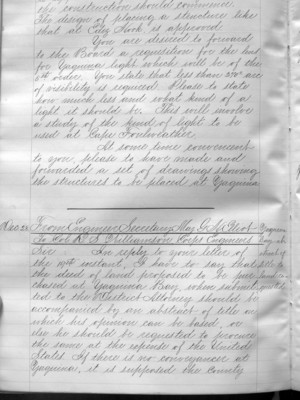 the construction should commence.
The design of placing a structure like
that at Ediz Hook is approved.
You are desired to forward
to the Board a requisition for the lens
for Yaquina light which will be of the
4th order. You state that less than 270° arc
of visibility is required. Please to state
how much less and what kind of a
light it should be. This will involve
a study of the kind of light to be
used at Cape Foulweather.
At some time convenient
to you, please to have made and
forwarded a set of drawings showing
the structures to be placed at Yaquina
From Engineer Secretary Maj. Elliot
To Col. R. S. Williamson Corps Engineers
Sir In reply to your letter of
the instant, I have to say that
the deed of land proposed to be pur-
chased at Yaquina Bay, when submit-
ted to the District Attorney should be
accompanied by an abstract of title on
which his opinion can be based, or
else he should be requested to procure
the same at the expense of the United
States. If there is no conveyances at
Yaquina, it is supposed the County